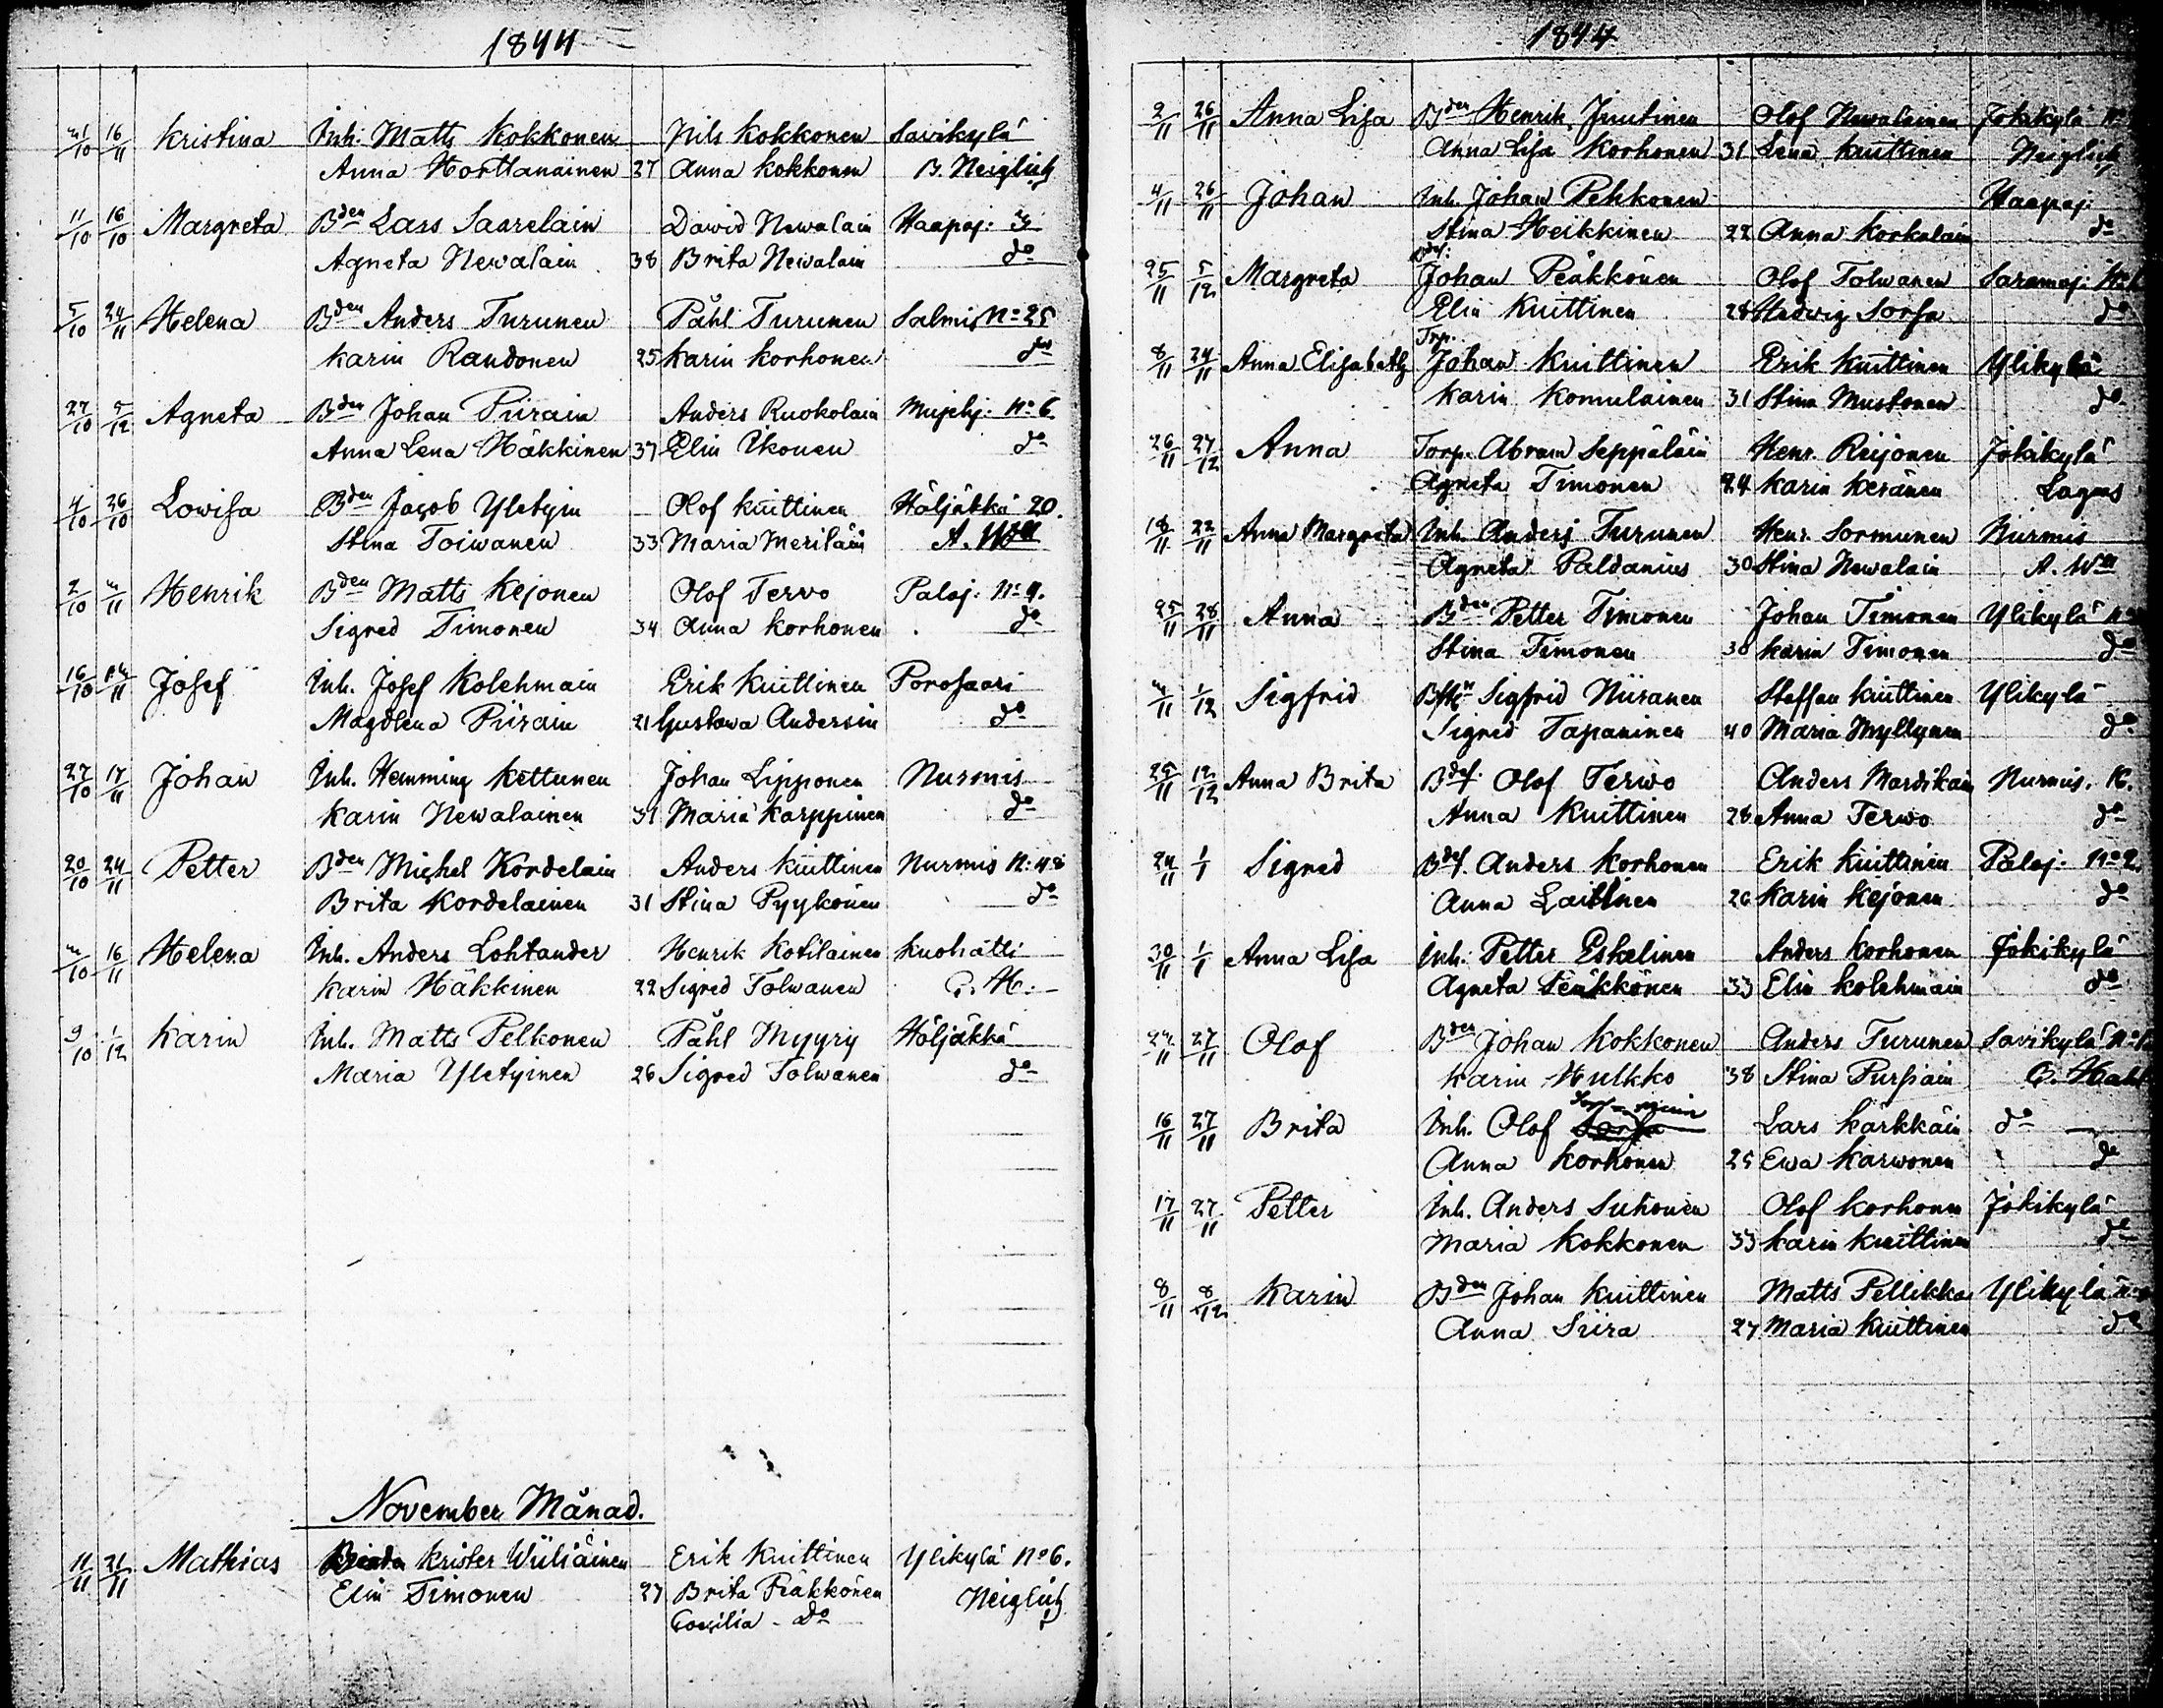 1844
21/10 16/11 Kristina Inh. Matts Kokkonen Nils Kokkonen Savikylä
Anna Horttanainen 27 Anna Kokkonen B. Neiglick
11/10 16/10 Margreta Bden Lars Saarelain David Newalain Haapaj: 3
Agneta Newalain 38 Brita Newalain do
5/10 24/11 Helena Bden Anders Turunen Påhl Turunen Salmis No 25
Karin Randonen 25 Karin Korhonen do
27/10 5/12 Agneta Bden Johan Piirain Anders Ruokolain Mujehj: No 6.
Anna Lena Häkkinen 37 Elin Ikonen do
4/10 26/10 Lovisa Bden Jacob Yletyin Olof Kuittinen Höljäkkä 20.
Stina Toiwanen 33 Maria Meriläin A. Wm
2/10 /11 Henrik Bden Matts Kejonen Olof Tervo Paloj. No 9.
Sigred Timonen 34 Anna Korhonen do
16/10 /11 Josef Inh. Josef Kolehmain Erik Kuittinen Porosaari
Magdlena Piirain 21 Gustava Andersin do
27/10 17/11 Johan Inh. Hemming Kettunen Johan Lipponen Nurmis
Karin Newalainen 31 Maria Karppinen do
20/10 24/11 Petter Bden Michel Kordelain Anders Kuittinen Nurmis No 48
Brita Kordelainen 31 Stina Pyykönen do
/10 16/11 Helena Inh. Anders Lohtander Henrik Kotilainen Kuohatti
Karin Häkkinen 22 Sigred Tolwanen C. H.
9/10 1/12 Karin Inh. Matts Pelkonen Påhl Myyry Höljäkkä
Maria Yletyinen 26 Sigred Tolwanen do
November Månad.
11/11 21/11 Mathias Krister Wiiliäinen Erik Kuittinen Ylikylä No 6.
Elin Timonen 27 Brita Piäkkönen Neiglick
Cecilia do
1844
2/11 26/11 Anna Lisa Bden Henrik Juutinen Olof Newalainen Jokikylä No
Anna Lisa Korhonen 31 Lena Kuittinen Neiglick
4/11 26/11 Johan Inh. Johan Pehkonen Haapaj:
Stina Heikkinen 22 Anna Korkalain do
25/11 5/12 Margreta Bdef: Johan Peäkkönen Olof Tolwanen Saramoj: No
Elin Kuittinen 28 Hedvig Sorsa do
8/11 24/11 Anna Elisabeth Trp. Johan Kuittinen Erik Kuittinen Ylikylä
Karin Komulainen 31 Stina Mustonen do
26/11 27/12 Anna Torp. Abram Seppäläin Henr. Reijonen Jokikylä
Agneta Timonen 24 Karin Keränen Lagus
18/11 22/11 Anna Margreta Inh. Anders Turunen Henr. Sormunen Nurmis
Agneta Paldanius 30 Stina Newalain A. Wm
25/11 28/11 Anna Bden Petter Timonen Johan Timonen Ylikylä No
Stina Timonen 38 Karin Timonen do
/11 1/12 Sigfrid Sigfrid Niiranen Staffan Kuittinen Ylikylä
Sigred Tapaninen 40 Maria Myllynen do
25/11 12/12 Anna Brita Bdef. Olof Terwo Anders Mardikain Nurmis. 16.
Anna Kuittinen 28 Anna Terwo do
24/11 1/1 Sigred Bdef. Anders Korhonen Erik Kuittinen Paloj: No 2.
Anna Laittinen 26 Karin Kejonen do
30/11 1/1 Anna Lisa Inh. Petter Eskelinen Anders Korhonen Jokikylä
Agneta Peäkkönen 33 Elin Kolehmain do
24/11 27/11 Olof Bden Johan Kokkonen Anders Turunen Savikylä No
Karin Hulkko 38 Stina Pursiain C. Hahl
16/11 27/11 Brita Inh. Olof Sorsa Lars Karkkäin do
Anna Korhonen 25 Ewa Karwonen do
17/11 27/11 Petter Inh. Anders Suhonen Olof Korhonen Jokikylä
Maria Kokkonen 33 Karin Kuittinen do
8/11 8/12 Karin Bden Johan Kuittinen Matts Pellikka Ylikylä No
Anna Siira 27 Maria Kuittinen do